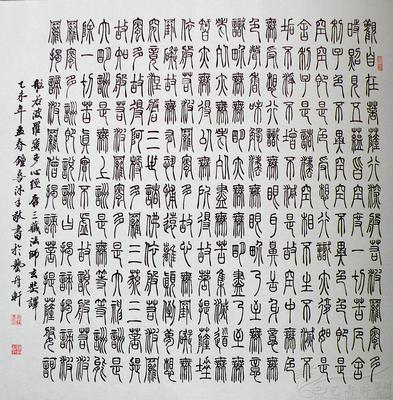 觀自在菩薩行深般若波羅蜜多
時照見五蘊皆空度一切苦厄舍
利子色不異空空不異色色即是
空空即是色受想行識亦復如是
舍利子是諸法空相不生不滅不
垢不淨不增不減是故空中無色
無受想行識無眼耳鼻舌身意無
色聲香味觸法無眼界乃至無意
界無無明亦無無明盡乃至無老
死亦無老死盡無苦集滅道無
智亦無得以無所得故菩提薩埵
依般若波羅蜜多故心無罣礙無
罣礙故無有恐怖遠離顛倒夢想
究竟涅槃三世諸佛依般若波羅
蜜多故得阿耨多羅三藐三菩提
故知般若波羅蜜多是大神咒是
大明咒是無上咒是無等等咒能
除一切苦真實不虛故說般若波
羅蜜多咒即說咒曰揭諦揭諦波
羅揭諦波羅僧揭諦菩提薩婆訶
般若波羅蜜多心經唐三藏法師玄奘譯
乙未年孟春鐘喜沐手敬書於藝舟軒